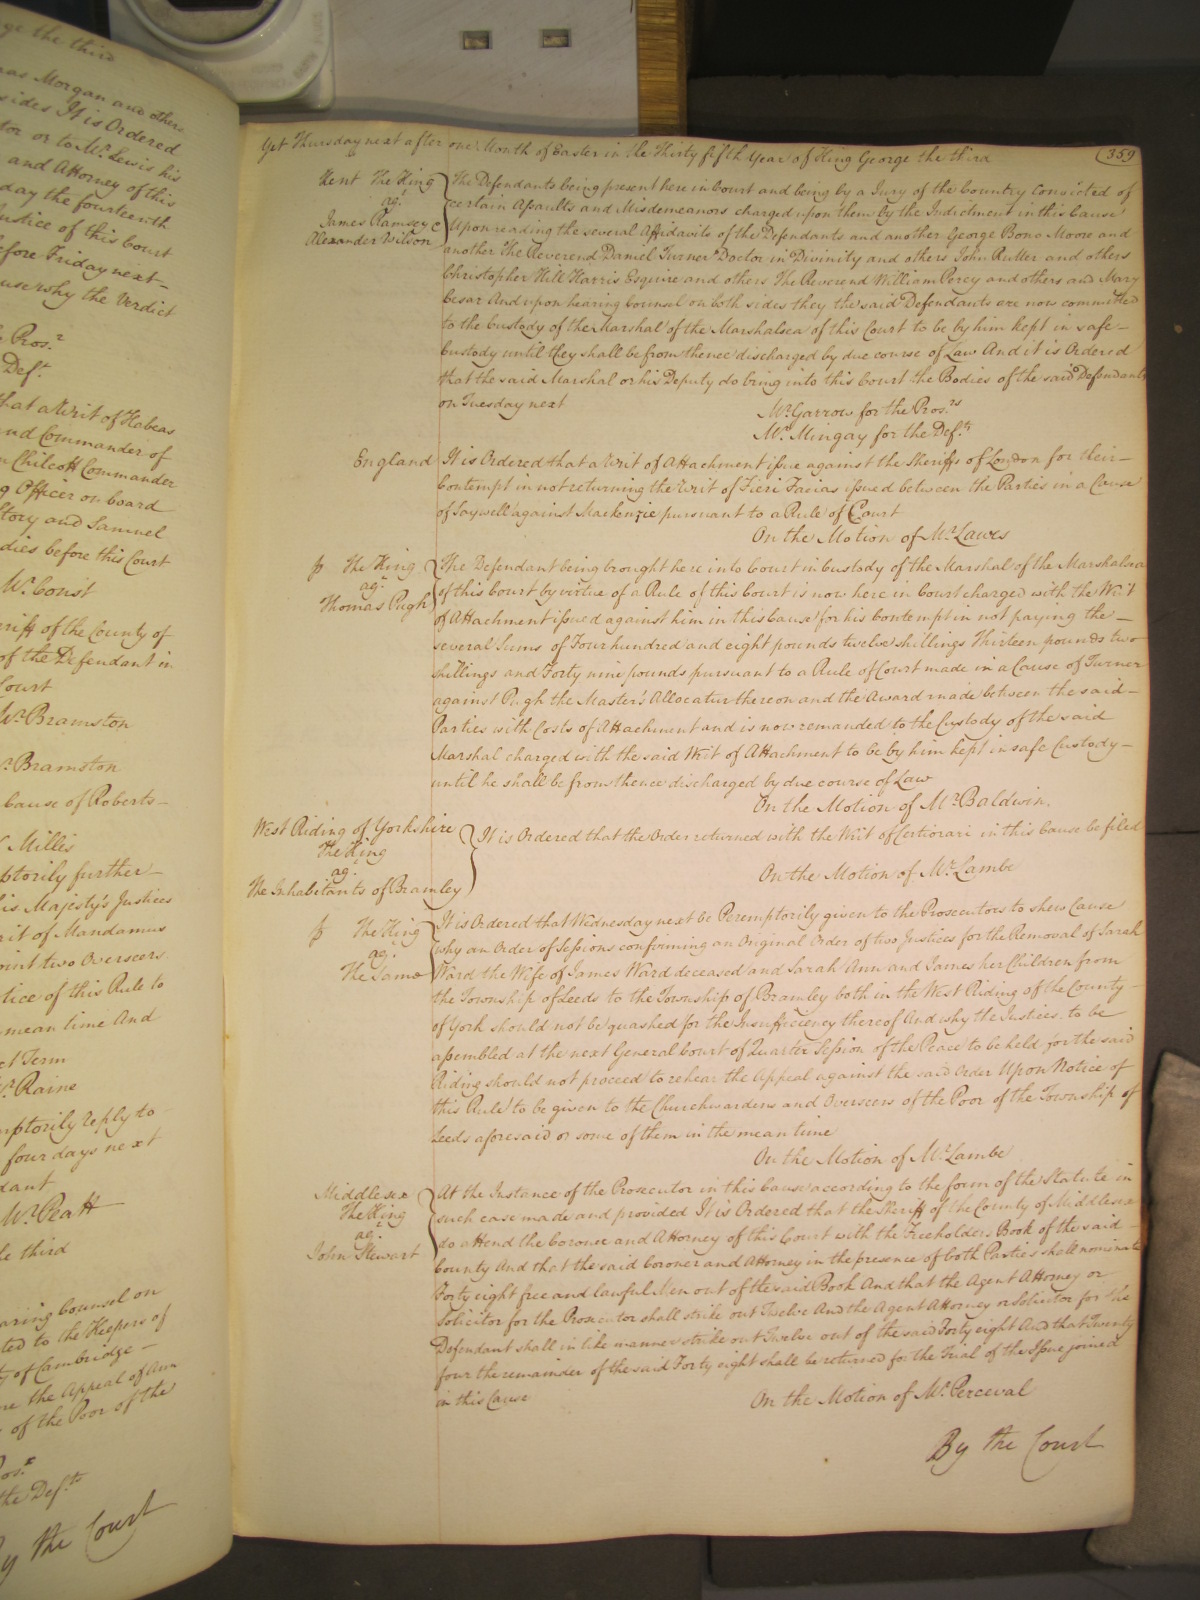 ge the third
as Morgan and others
sides It is Ordered
tor or to Mr. Lewis his
and Attorney of this
day the fourteenth
Justice of this Court
efore Friday next
use why the Verdict
Pros.r
Def.t
that a Writ of Habeas
and Commander of
Chilcott Commander
g Officer on board
Story and Samuel
dies before this Court
Mr. Const
eriff of the County of
of the Defendant in
Court
Mr. Bramston
r. Bramston
Cause of Roberts
Millis
ptorily further
is Majesty's Justices
rit of Mandamus
oint two Overseers
tice of this Rule to
mean time And
xt Term
r. Raine
mptorily reply to
four days next
dant
Mr. Peatt
he third
aring Counsel on
ted to the Keepers of
of Cambridge
the Appeal of Ann
of the Poor of the
ros.r
the Def.ts
By the Court
Yet Thursday next after one Month of Easter in the Thirty fifth Year of King George the third
359
Kent The King
ag.t
James Ramsey &
Alexander Wilson
The Defendants being present here in Court and being by a Jury of the Country Convicted of
certain Assaults and Misdemeanors charged upon them by the Indictment in this Cause
Upon reading the several Affidavits of the Defendants and another George Bono Moore and
another The Reverend Daniel Turner Doctor in Divinity and others John Rutter and others
Christopher Hill Harris Esquire and others The Reverend William Percy and others and Mary
Cesar And upon hearing Counsel on both sides they the said Defendants are now committed
to the Custody of the Marshal of the Marshalsea of this Court to be by him kept in safe
Custody until they shall be from thence discharged by due course of Law And it is Ordered
that the said Marshal or his Deputy do bring into this Court the Bodies of the said Defendants
on Tuesday next
Mr. Garrow for the Pros.rs
Mr. Mingay for the Def.ts
England
It is Ordered that a Writ of Attachment issue against the Sheriffs of London for their
Contempt in not returning the Writ of Fieri Facias issued between the Parties in a Cause
of Saywell against Mackenzie pursuant to a Rule of Court
On the Motion of Mr. Lawes
The King
ag.t
Thomas Pugh
The Defendant being brought here into Court in Custody of the Marshal of the Marshalsea
of this Court by virtue of a Rule of this Court is now here in Court charged with the Writ
of Attachment issued against him in this Cause for his Contempt in not paying the
several Sums of Four hundred and eight pounds twelve shillings Thirteen pounds two
shillings and Forty nine pounds pursuant to a Rule of Court made in a Cause of Turner
against Pugh the Master's Allocatur thereon and the Award made between the said
Parties with Costs of Attachment and is now remanded to the Custody of the said
Marshal charged with the said Writ of Attachment to be by him kept in safe Custody
until he shall be from thence discharged by due course of Law
On the Motion of Mr. Baldwin.
West Riding of Yorkshire
The King
ag.t
The Inhabitants of Bramley
It is Ordered that the Order returned with the Writ of Certiorari in this Cause be filed
On the Motion of Mr. Lambe
The King
ag.t
The Same
It is Ordered that Wednesday next be Peremptorily given to the Prosecutors to shew Cause
why an Order of Sessions confirming an Original Order of two Justices for the Removal of Sarah
Ward the Wife of James Ward deceased and Sarah Ann and James her Children from
the Township of Leeds to the Township of Bramley both in the West Riding of the County
of York should not be quashed for the Insufficiency thereof And why the Justices to be
assembled at the next General Court of Quarter Session of the Peace to be held for the said
Riding should not proceed to rehear the Appeal against the said Order Upon Notice of
this Rule to be given to the Churchwardens and Overseers of the Poor of the Township of
Leeds aforesaid or some of them in the mean time
On the Motion of Mr. Lambe
Middlesex
The King
ag.t
John Stewart
At the Instance of the Prosecutor in this Cause according to the form of the Statute in
such case made and provided It is Ordered that the Sheriff of the County of Middlesex
do attend the Coroner and Attorney of this Court with the Freeholders Book of the said
County And that the said Coroner and Attorney in the presence of both Parties shall nominate
Forty eight free and lawful Men out of the said Book And that the Agent Attorney or
Solicitor for the Prosecutor shall strike out Twelve And the Agent Attorney or Solicitor for the
Defendant shall in like manner strike out Twelve out of the said Forty eight And that Twenty
four the remainder of the said Forty eight shall be returned for the Trial of the Issue joined
in this Cause
On the Motion of Mr. Perceval
By the Court